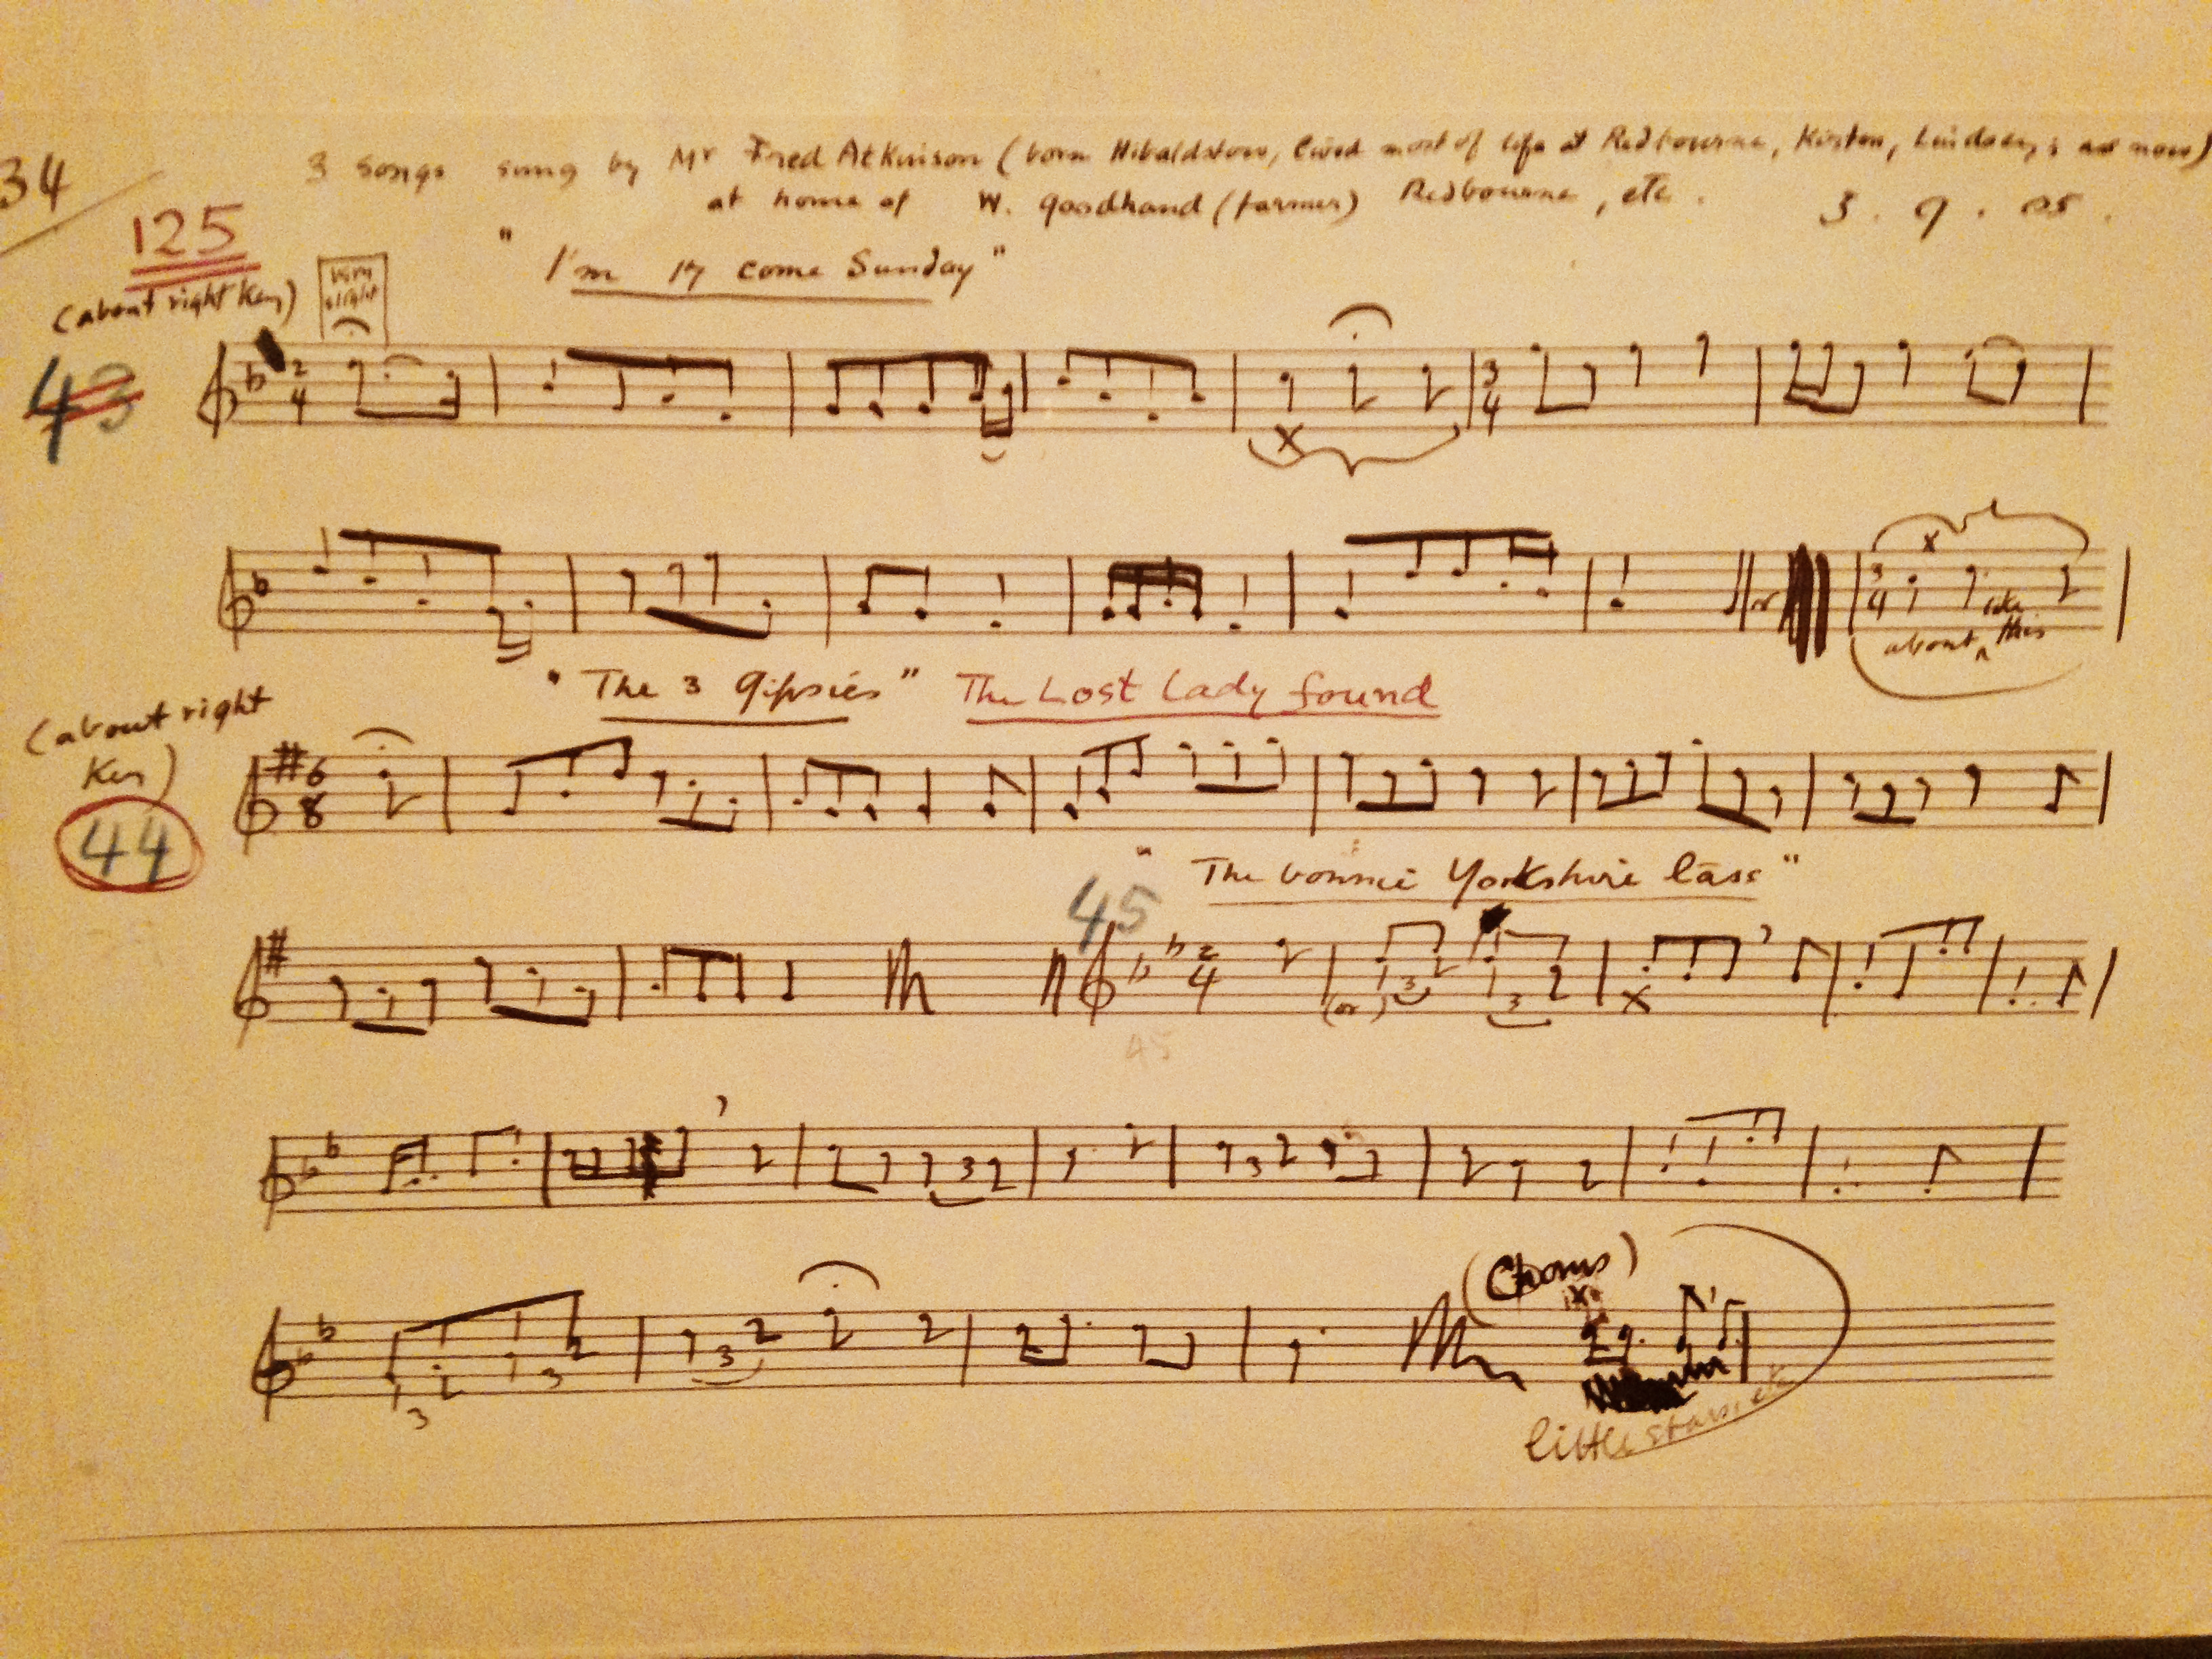 34
3 songs sung by Mr Fred Atkinson (born Hibaldstow, lived most of life at Redbourne, Kirton, Lindsey, as now)
at home of W. Goodhand (farmer) Redbourne, etc. 3. 9. 05.
125
"I'm 17 come Sunday"
(about right key)
very slight
43
2 4
3 4
x
or
3 4
x
about like this
"The 3 Gipsies" The Lost Lady found
(about right
key)
44
6 8
"The bonnie Yorkshire lass"
45
2 4
(or)
3
3
x
45
3
3
3
3
3
(Chorus)
x
little stars, etc